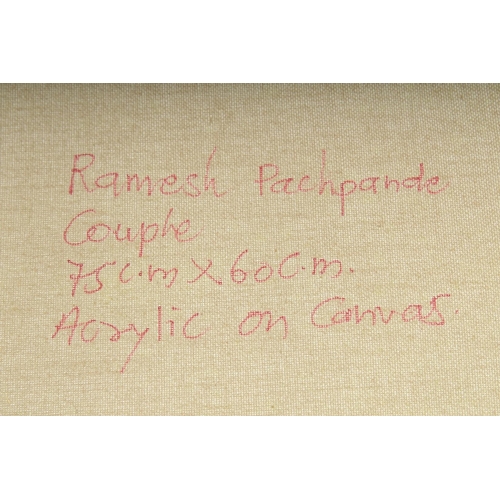 Ramesh Pachpande
Couple
75 c.m X 60 c.m.
Acrylic on Canvas.